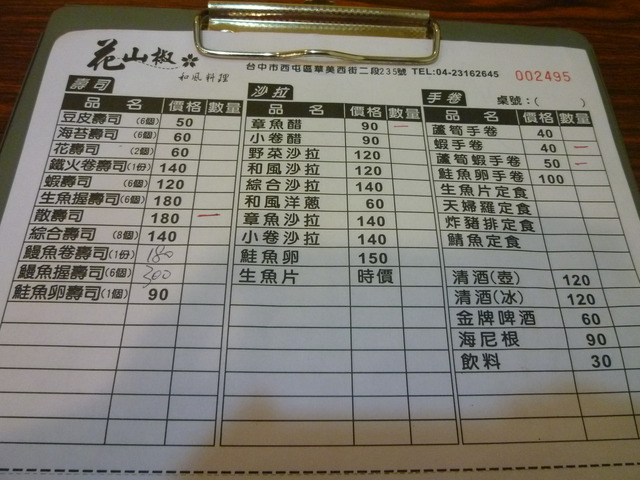 花山椒
和風料理
台中市西屯區華美西街二段235號 TEL:04-23162645
002495
壽司
品名 價格 數量
豆皮壽司(6個) 50
海苔壽司(6個) 60
花壽司(2個) 60
鐵火卷壽司(1份) 140
蝦壽司(6個) 120
生魚握壽司(6個) 180
散壽司 180 一
綜合壽司(8個) 140
鰻魚卷壽司(1份) 180
鰻魚握壽司(6個) 300
鮭魚卵壽司(1個) 90
沙拉
品名 價格 數量
章魚醋 90 一
小卷醋 90
野菜沙拉 120
和風沙拉 120
綜合沙拉 140
和風洋蔥 60
章魚沙拉 140
小卷沙拉 140
鮭魚卵 150
生魚片 時價
手卷 桌號:( )
品名 價格 數量
蘆筍手卷 40
蝦手卷 40 一
蘆筍蝦手卷 50 一
鮭魚卵手卷 100
生魚片定食
天婦羅定食
炸豬排定食
鯖魚定食
清酒(壺) 120
清酒(冰) 120
金牌啤酒 60
海尼根 90
飲料 30